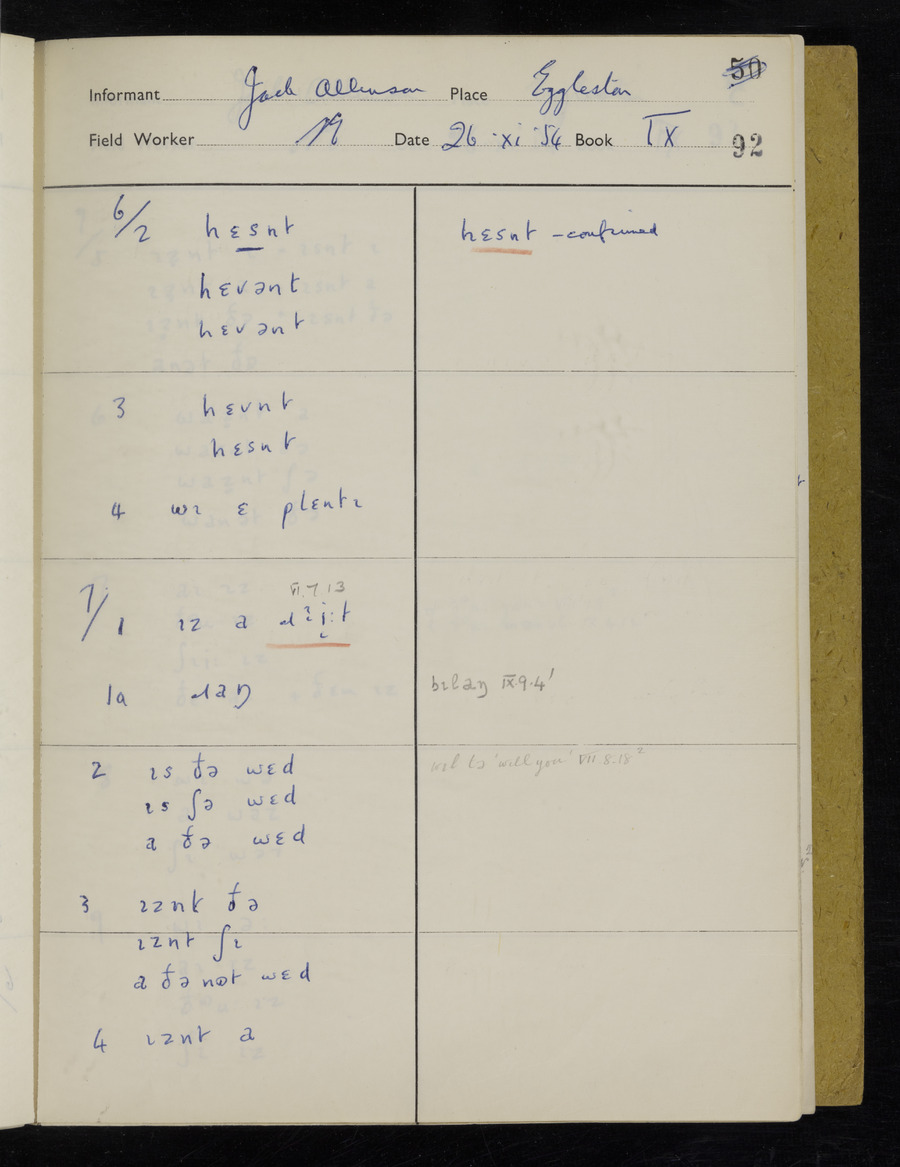 50
Informant Jack Allinson Place Eggleston
Field Worker N Date 26·xi·54 Book IX 92
6/2 hɛsnt
hɛsnt – confirmed
hɛvənt
hɛvənt
3 hɛvnt
hɛsnt
4 wɪ ɛ plɛntɪ
VI.7 13
7/1 ɪz a
1a ðaŋ
bɪlaŋ IX.9.4'
2 ɪs ðə wɛd
ɪs ʃə wɛd
a ðə wɛd
'will you' VII.8.18²
3 ɪznt ðə
ɪznt ʃɪ
a ðə nɒt wɛd
4 ɪznt a